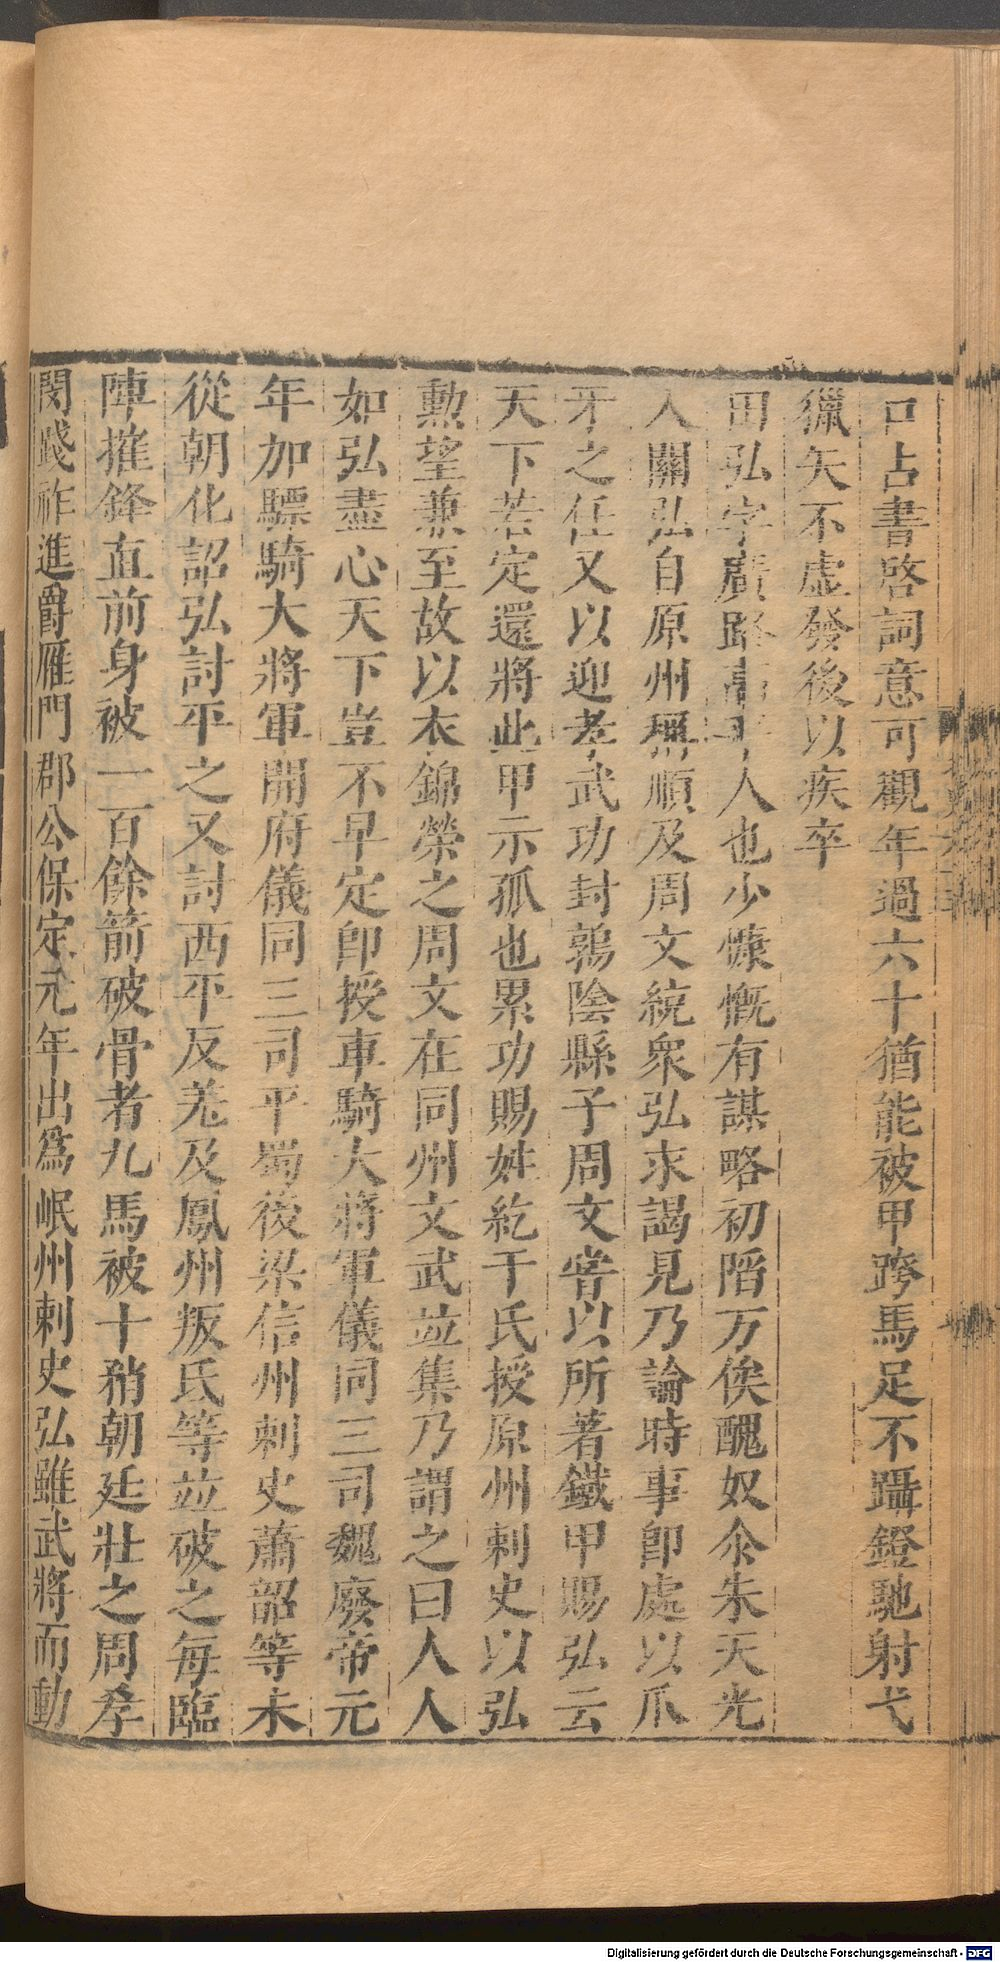 口占書啓詞意可觀年過六十猶能被甲跨馬足不躡鐙馳射弋
獵矢不虛發後以疾卒
田弘字廣路高平人也少慷慨有謀略初陷万俟醜奴尒朱天光
入關弘自原州歸順及周文統衆弘求謁見乃論時事卽處以爪
牙之任又以迎孝武功封鶉陰縣子周文甞以所著鐵甲賜弘云
天下若定還將此甲示孤也累功賜姓紇干氏授原州刺史以弘
勲望兼至故以衣錦榮之周文在同州文武竝集乃謂之曰人人
如弘盡心天下豈不早定卽授車騎大將軍儀同三司魏廢帝元
年加驃騎大將軍開府儀同三司平蜀後梁信州刺史蕭韶等未
從朝化詔弘討平之又討西平反羗及鳳州叛氐等竝破之每臨
陣摧鋒直前身被一百餘箭破骨者九馬被十矟朝廷壯之周孝
閔踐祚進爵雁門郡公保定元年出爲岷州刺史弘雖武將而動
Digitalisierung gefördert durch die Deutsche Forschungsgemeinschaft - DFG